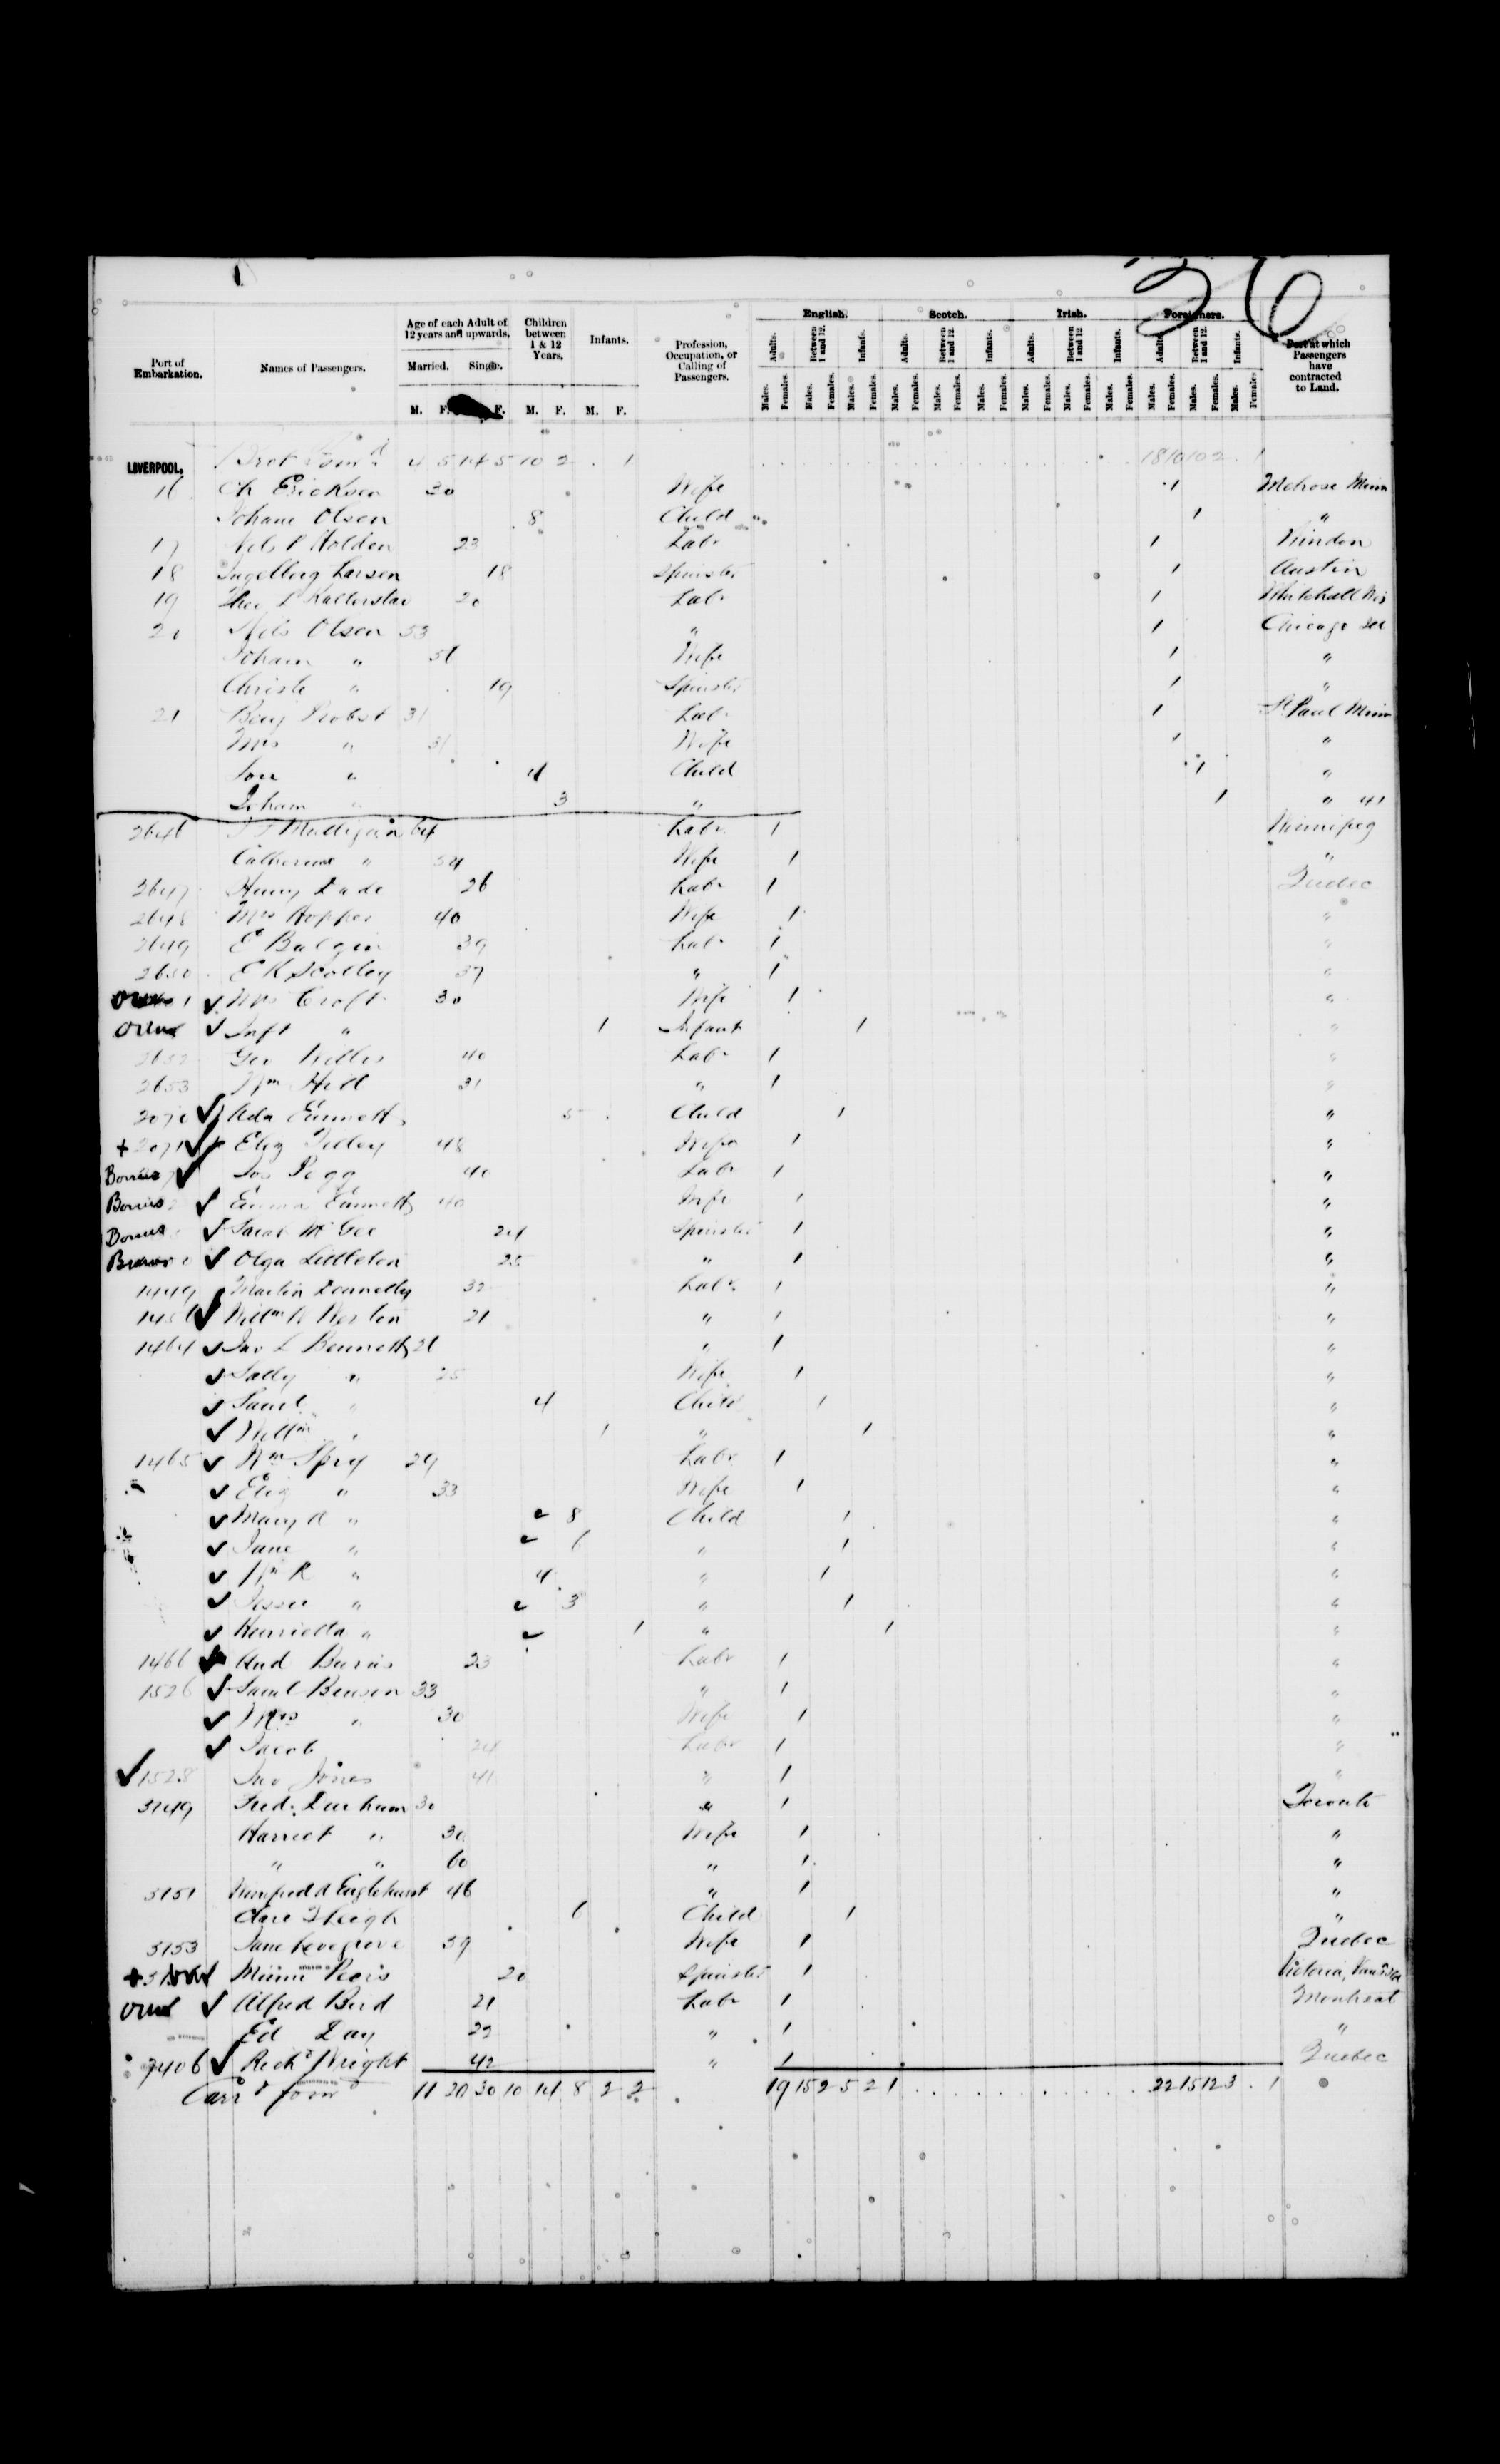 26
Port of Embarkation. Names of Passengers. Age of each Adult of 12 years and upwards. Children between 1 & 12 Years. Infants. Profession, Occupation, or Calling of Passengers. English. Scotch. Irish. Foreigners. Port at which Passengers have contracted to Land.
Married. Single. Adults. Between 1 and 12. Infants. Adults. Between 1 and 12 Infants. Adults. Between 1 and 12 Infants. Adults. Between 1 and 12. Infants.
M. F. F. M. F. M. F. Males. Females. Males. Females. Males. Females. Males. Females. Males. Females. Males. Females. Males. Females. Males. Females. Males. Females. Males. Females. Males. Females. Males. Females.
LIVERPOOL. Brot Forwd 4 5 14 5 10 2 . 1 18 10 10 2 . 1
16 Ch Ericksen 30 Wife 1 Melrose Minn
Johane Olsen 8 Child 1 "
17 Nels P Holden 23 Labr 1
18 Ingelborg Larsen 18 Spinster 1 Austin
19 20 Labr 1 Whitehall Wis
20 Nels Olsen 53 " 1 Chicago Ill
Joham " 51 Wife 1 "
Christe " 19 Spinster 1 "
21 Benj Probst 31 Labr 1 St Paul Minn
Mrs " 31 Wife 1 "
Son " 4 Child 1 "
Joham " 3 " 1 " 41
2646 Mulligan 64 Labr 1 Winnipeg
Catherine " 54 Wife 1 "
2647 Henry Dade 26 Labr 1 Quebec
2648 Mrs Hopper 40 Wife 1 "
2649 E Balgin 39 Labr 1 "
2650 E K Scolley 37 " 1 "
1 Mrs Croft 30 Wife 1 "
Inft " 1 Infant 1 "
2652 Geo Willis 40 Labr 1 "
2653 Wm Hill 31 " 1 "
2070 Ada Emmett 5 Child 1 "
+ 2071 Eliz Tilley 48 Wife 1 "
Bonus Jos Pegg 40 Labr 1 "
Bonus Emma Emmett 40 Wife 1 "
Bonus Sarah McGee 24 Spinster 1 "
Olga Littleton 25 " 1 "
1449 Martin Donnelly 32 Labr 1 "
1456 Willm H Weston 21 " 1 "
1464 Jno L Bennett 26 " 1 "
Sally " 25 Wife 1 "
Saml " 4 Child 1 "
Willm " 1 " 1 "
1465 Wm Spry 29 Labr 1 "
Eliz " 33 Wife 1 "
Mary A " 8 Child 1 "
Jane " 6 " 1 "
Wm R " 4 " 1 "
Jessie " 3 " 1 "
Henrietta " 1 " 1 "
1466 And Burns 23 Labr 1 "
1526 Saml Benson 33 " 1 "
Mrs " 30 Wife 1 "
Jacob 24 Labr 1 "
1528 Jno Jones 41 " 1 "
3149 Fred. Durham 30 " 1 Toronto
Harriet " 30 Wife 1 "
" " 60 " 1 "
3151 Winifred A Englehurst 46 " 1 "
Clare Sleigh 6 Child 1 "
3153 Jane Lovegrove 39 Wife 1 Quebec
Minnie 20 Spinster 1 Victoria,
Alfred Bird 21 Labr 1 Montreal
Ed Day 29 " 1 "
7406 Richd Wright 42 " 1 Quebec
Carrd Forwd 11 20 30 10 14 8 2 2 19 15 2 5 2 1 22 15 12 3 . 1